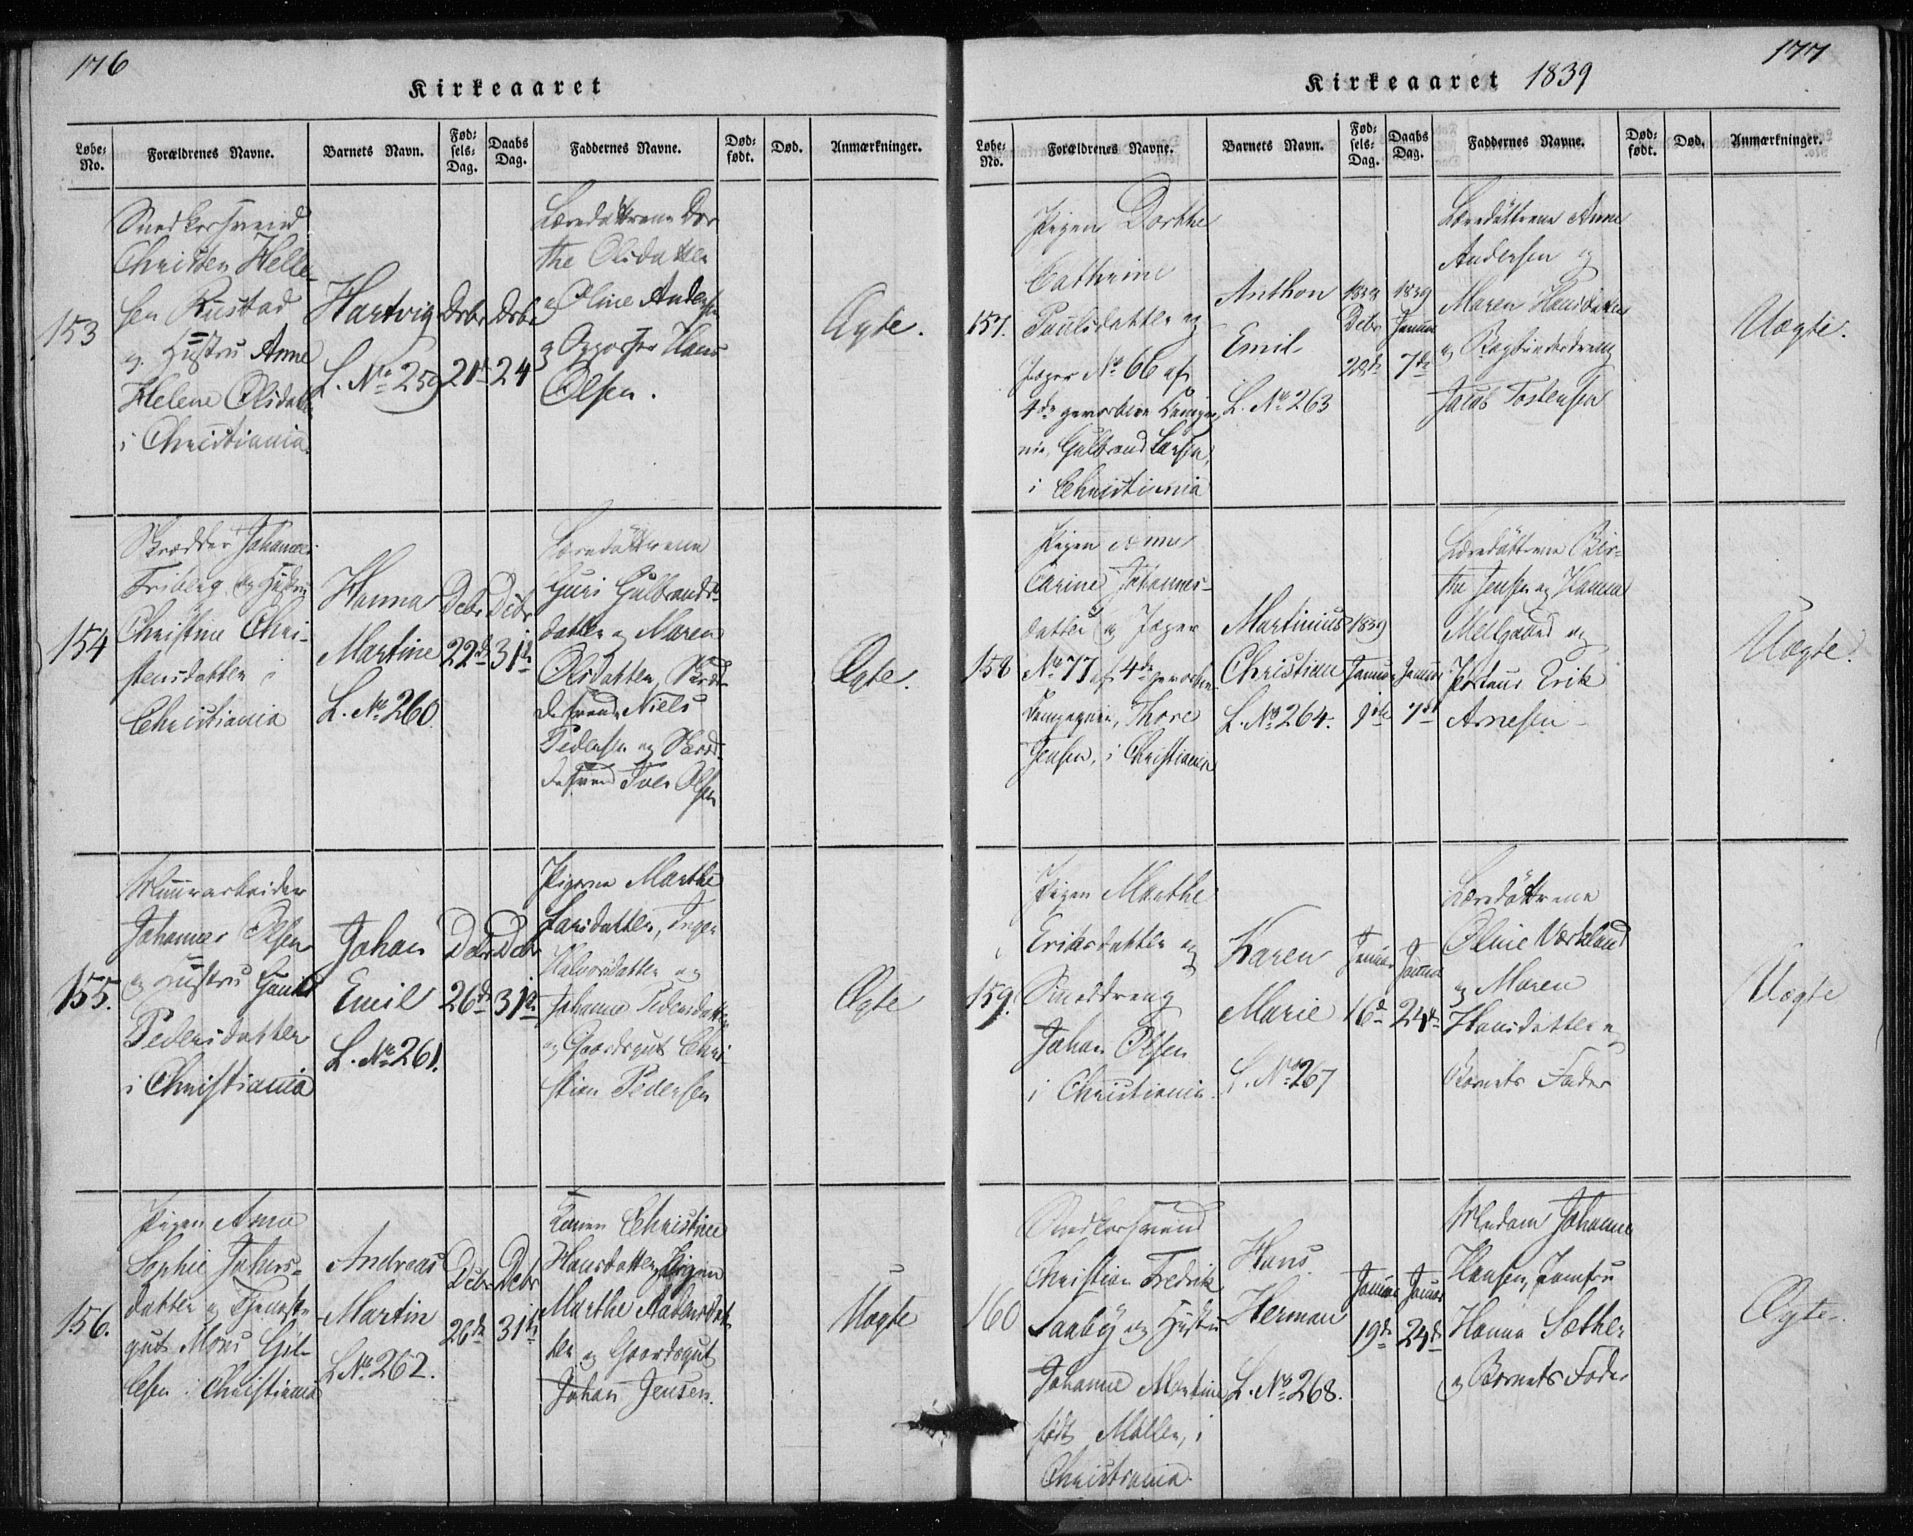 176
Kirkeaaret
Løbe-No. Forældrenes Navne. Barnets Navn. Fød-sels-Dag. Daabs Dag. Faddernes Navne. Død-født. Død. Anmærkninger.
153
Snedkersvend
Christen Helle-
sen Rustad
og Hustru Anne
Helene Olsdatt
i Christiania.
Hartvig
L. No 259
Dcbr
21de
Dcbr
24
Læredøttrene Dor
the Olsdatter
og Oline Anders
og Hans
Olsen.
Ægte.
154
Skrædder Johannes
Friberg og Hustru
Christine Chri-
stensdatter i
Christiania
Hanna
Martine
L. No 260
Dcbr
22de
Dcbr
31te
Læredøttrene
Guri Gulbrands-
datter og Maren
Olsdatter, Skræd-
dersvend Niels
Pedersen og Skræd-
dersvend Iver Olsen
Ægte.
155.
Muurarbeider
Johannes Olsen
og Hustru Gunild
Pedersdatter
i Christiania
Johan
Emil
L. No 261.
Dcbr
26de
Dcbr
31te
Pigerne Marthe
Larsdatter, Inger
Halvorsdatter og
Johanne Pedersdatter
og Gaardsgut Chri-
stian Pedersen
Ægte
156.
Pigen Anne
Sophie Johns-
datter og Tjeneste
gut Mons Gul-
lesen i Christiania
Andreas
Martin
L No 262.
Dcbr
26de
Dcbr
31te
Konen Christine
Hansdatter, Pigen
Marthe Andersdat-
ter og Gaardsgut
Johan Jensen.
Uægte
177
Kirkeaaret 1839
Løbe-No. Forældrenes Navne. Barnets Navn. Fød-sels-Dag. Daabs Dag. Faddernes Navne. Død-født. Død. Anmærkninger.
157.
Pigen Dorthe
Cathrine
Paulsdatter og
Jæger No 66 af
4de gevorbne Kompag-
nie, Gulbrand Larsen,
i Christiania
Anthon
Emil
L. No 263
Dcbr
28de
1839
Januar
7de
Læredøttrene Anne
Andersen og
Maren Hansdatter
og Bogbinderdreng
Jacob Tostensen
Uægte.
158
Pigen Anne
Carine Johannes-
datter og Jæger
No 77 af 4de gevorbne
Kompagnie, Thore
Jensen, i Christiania
Martinius
Christian
L. No 264.
1839
Januar
Januar
7de
Læredøttrene Bir-
the Jensen og Hanna
Mellgaard og
Erik
Arnesen
Uægte.
159.
Pigen Marthe
Eriksdatter og
Smeddreng
Johan Olsen
i Christiania
Karen
Marie
L. No 267
Januar
16de
Januar
24de
Læredøttrene
Oline Værkland
og Maren
Hansdatter og
Barnets Fader
Uægte
160
Snedkersvend
Christian Fredrik
Saaby og Hustru
Johanne Martine
født Møller, i
Christiania.
Hans
Herman
L. No 268.
Januar
19de
Januar
24de
Madam Johanne
Hansen, Jomfru
Hanna Sæther
og Barnets Fader
Ægte.